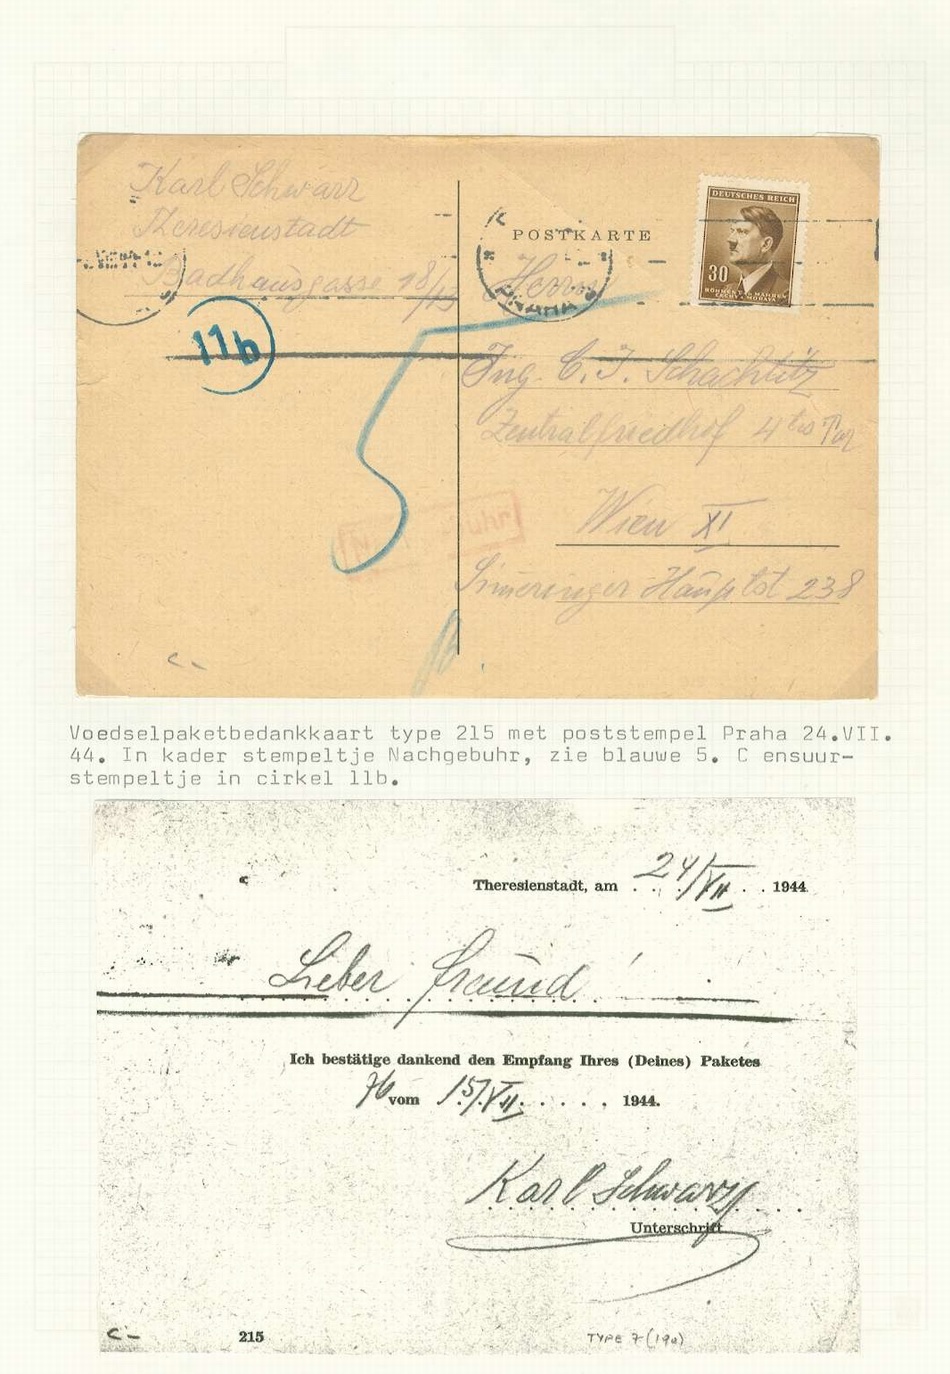 Karl Schwarz
Theresienstadt
Badhausgasse 18/
11b
POSTKARTE
PRAHA
DEUTSCHES REICH
30
BÖHMEN U. MÄHREN
ČECHY A MORAVA
Herrn
Ing. C. J. Schachlitz
Zentralfriedhof 4tes Tor
Wien XI
Simeringer Hauptst 238
5
Voedselpaketbedankkaart type 215 met poststempel Praha 24.VII.
44. In kader stempeltje Nachgebuhr, zie blauwe 5. C ensuur-
stempeltje in cirkel 11b.
Theresienstadt, am 24/VII 1944
Lieber Freund!
Ich bestätige dankend den Empfang Ihres (Deines) Paketes
vom 15/VII. . . . . . 1944.
Karl Schwarz
Unterschrift
215
TYPE 7 (190)